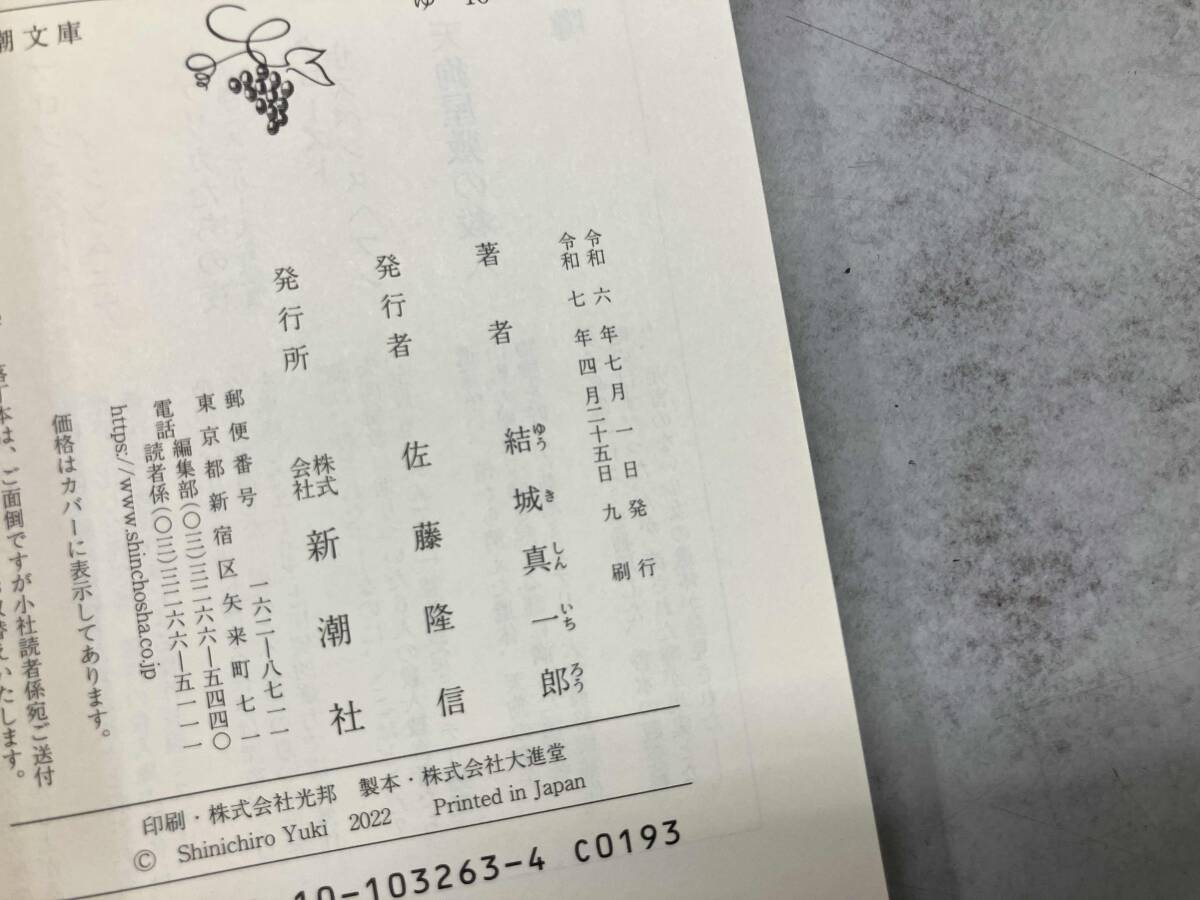 潮文庫
ゆ 16
令和六年七月一日発行
令和七年四月二十五日九刷
著者 結城真一郎
ゆうきしんいちろう
発行者 佐藤隆信
発行所 株式会社 新潮社
郵便番号 一六二―八七一一
東京都新宿区矢来町七一
電話 編集部(〇三)三二六六―五四四〇
読者係(〇三)三二六六―五一一一
https://www.shinchosha.co.jp
価格はカバーに表示してあります。
本は、ご面倒ですが小社読者係宛ご送付
替えいたします。
印刷・株式会社光邦 製本・株式会社大進堂
© Shinichiro Yuki 2022 Printed in Japan
10-103263-4 C0193